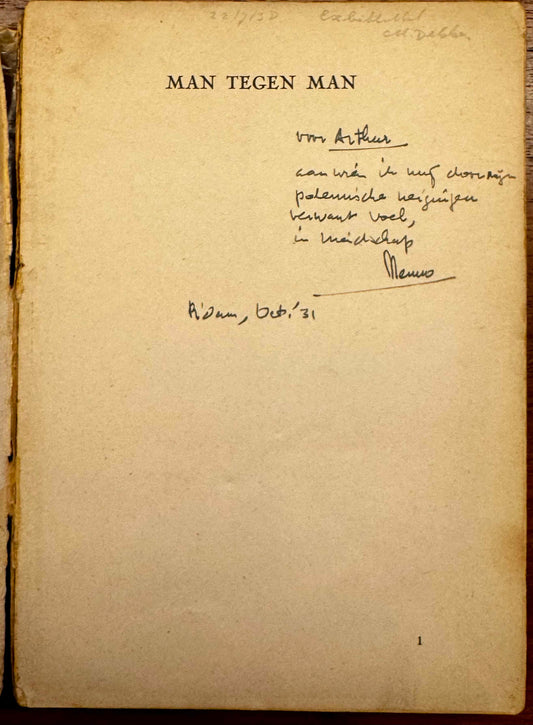 22/7/5D Ex bibliotheca
Ch. Dekker
MAN TEGEN MAN
voor Arthur
aan wien ik mij door mijn
polemische neigingen
verwant voel,
in vriendschap
Menno
R'dam, Oct. '31
1